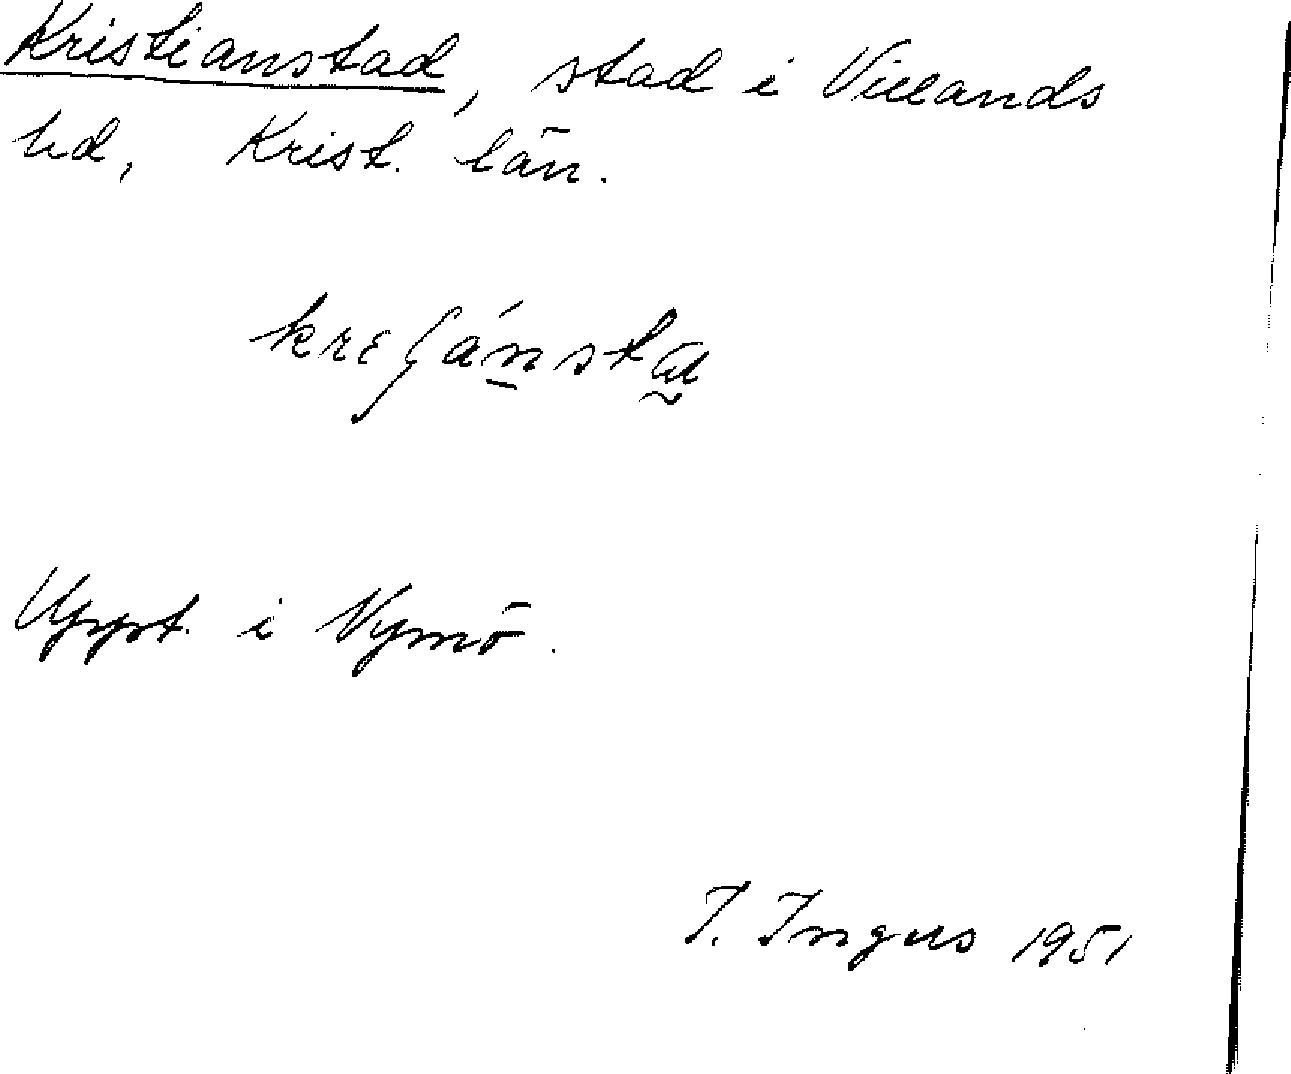 Kristianstad, stad i Villands
hd, Krist. län.
Uppt. i Nymö.
I. Ingers 1951